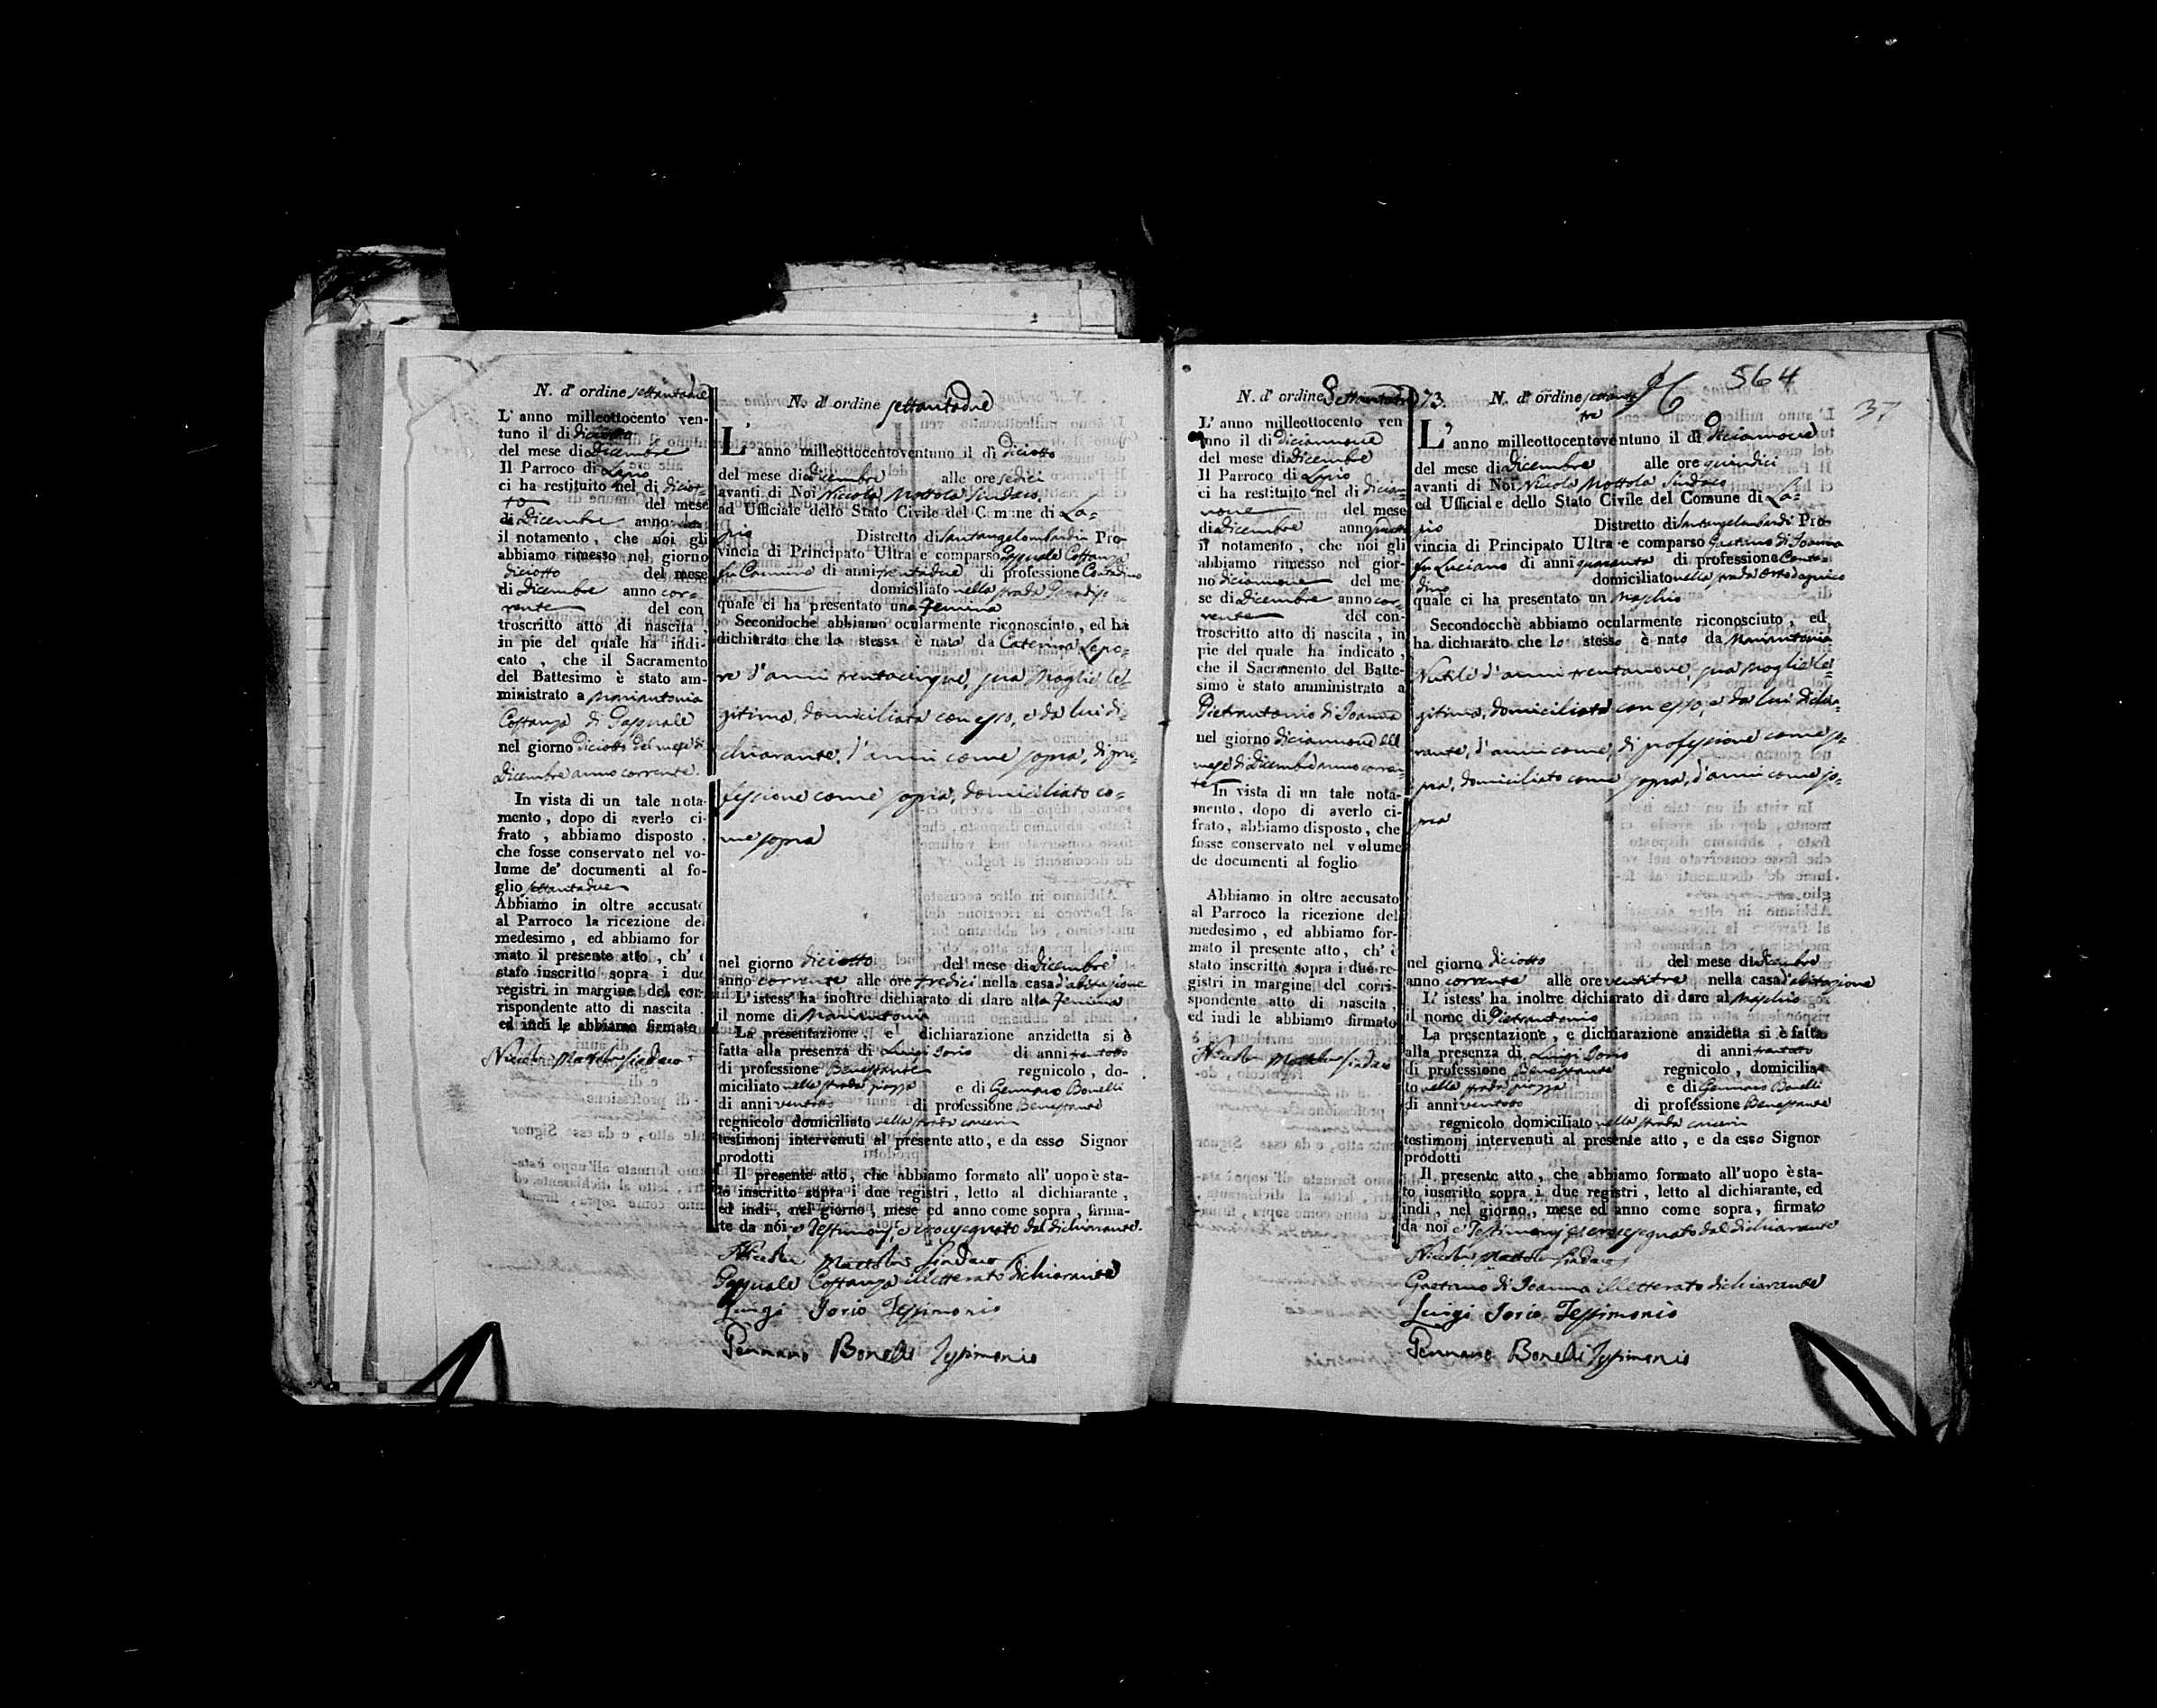 N. d' ordine settantadue
L' anno milleottocento ven-
tuno il di diciotto
del mese di Dicembre
Il Parroco di Lapio
ci ha restituito nel di diciot-
to del mese
di Dicembre anno
il notamento, che noi gli
abbiamo rimesso nel giorno
diciotto del mese
di Dicembre anno cor-
rente del con
troscritto atto di nascita,
in pie del quale ha indi-
cato, che il Sacramento
del Battesimo è stato am-
ministrato a Mariantonia
Costanza di Pasquale
nel giorno diciotto del mese di
Dicembre anno corrente.
In vista di un tale nota-
mento, dopo di averlo ci-
frato, abbiamo disposto,
che fosse conservato nel vo-
lume de' documenti al fo-
glio settantadue
Abbiamo in oltre accusato
al Parroco la ricezione del
medesimo, ed abbiamo for
mato il presente atto, ch' è
stato inscritto sopra i due
registri in margine del cor-
rispondente atto di nascita
ed indi le abbiamo firmato
Niccola Mottola Sindaco
N. d' ordine settantadue
L' anno milleottocentoventuno il dì diciotto
del mese di Dicembre alle ore sedici
avanti di Noi Niccola Mottola Sindaco
ad Ufficiale dello Stato Civile del Comune di La=
pio Distretto di Santangelombardi Pro-
vincia di Principato Ultra e comparso Pasquale Costanza
fu Carmine di anni trentadue di professione Contadino
domiciliato nella strada Paradiso
quale ci ha presentato una Femina
Secondoche abbiamo ocularmente riconosciuto, ed ha
dichiarato che la stessa è nata da Caterina Lepo=
re d'anni trentacinque, sua Moglie le=
gitima, domiciliata con esso, e da lui di=
chiarante, d'anni come sopra, di pro=
fessione come sopra, domiciliato co=
me sopra
nel giorno diciotto del mese di Dicembre
anno corrente alle ore tredici nella casa d'abitazione
L'istess' ha inoltre dichiarato di dare alla Femina
il nome di Mariantonia
La presentazione, e dichiarazione anzidetta si è
fatta alla presenza di Luigi Iorio di anni trentotto
di professione Benestante regnicolo, do-
miciliato nella strada piazza e di Gennaro Bonelli
di anni ventotto di professione Benestante
regnicolo domiciliato nella strada
testimonj intervenuti al presente atto, e da esso Signor
prodotti
Il presente atto, che abbiamo formato all' uopo è sta-
to inscritto sopra i due registri, letto al dichiarante,
ed indi, nel giorno, mese ed anno come sopra, firma-
te da noi, e Testimonj, e crocesegnato dal dichiarante.
Niccola Mottola Sindaco
Pasquale Costanza illetterato dichiarante
Luigi Iorio Testimonio
Gennaro Bonelli Testimonio
N. d' ordine Settantatre
L' anno milleottocento ven
tuno il di diciannove
del mese di Dicembre
Il Parroco di Lapio
ci ha restituito nel di dician-
nove del mese
di Dicembre anno
il notamento, che noi gli
abbiamo rimesso nel gior-
no diciannove del me-
se di Dicembre anno cor-
rente del con-
troscritto atto di nascita, in
pie del quale ha indicato,
che il Sacramento del Batte-
simo è stato amministrato a
Pietrantonio di Ioanna
nel giorno diciannove del
mese di Dicembre anno corren-
te
In vista di un tale nota-
mento, dopo di averlo ci-
frato, abbiamo disposto, che
fosse conservato nel volume
de documenti al foglio
Abbiamo in oltre accusato
al Parroco la ricezione del
medesimo, ed abbiamo for-
mato il presente atto, ch' è
stato inscritto sopra i due re-
gistri in margine del corri-
spondente atto di nascita,
ed indi le abbiamo firmato
Niccola Mottola Sindaco
564
37
73. N. d' ordine settanta
tre
L' anno milleottocentoventuno il dì diciannove
del mese di Dicembre alle ore quindici
avanti di Noi Niccola Mottola Sindaco
ed Ufficiale dello Stato Civile del Comune di La=
pio Distretto di Santangelombardi Pro-
vincia di Principato Ultra e comparso Gaetano di Ioanna
fu Luciano di anni quaranta di professione Conta=
dino domiciliato nella strada
quale ci ha presentato un Maschio
Secondocchè abbiamo ocularmente riconosciuto, ed
ha dichiarato che lo stesso è nato da Mariantonia
Nutile d'anni trentanove, sua Moglie le=
gitima, domiciliata con esso, e da lui dichia=
rante, d'anni come, di professione come so=
pra, domiciliato come sopra, d'anni come so=
pra
nel giorno diciotto del mese di Dicembre
anno corrente alle ore ventitre nella casa d'abitazione
L' istess' ha inoltre dichiarato di dare al Maschio
il nome di Pietrantonio
La presentazione, e dichiarazione anzidetta si è fatta
alla presenza di Luigi Iorio di anni trentotto
di professione Benestante regnicolo, domicilia-
to nella strada piazza e di Gennaro Bonelli
di anni ventotto di professione Benestante
regnicolo domiciliato nella strada
testimonj intervenuti al presente atto, e da esso Signor
prodotti
Il presente atto, che abbiamo formato all'uopo è sta-
to inscritto sopra i due registri, letto al dichiarante, ed
indi, nel giorno, mese ed anno come sopra, firmato
da noi e Testimonj, e crocesegnato dal dichiarante
Niccola Mottola Sindaco
Gaetano di Ioanna illetterato dichiarante
Luigi Iorio Testimonio
Gennaro Bonelli Testimonio